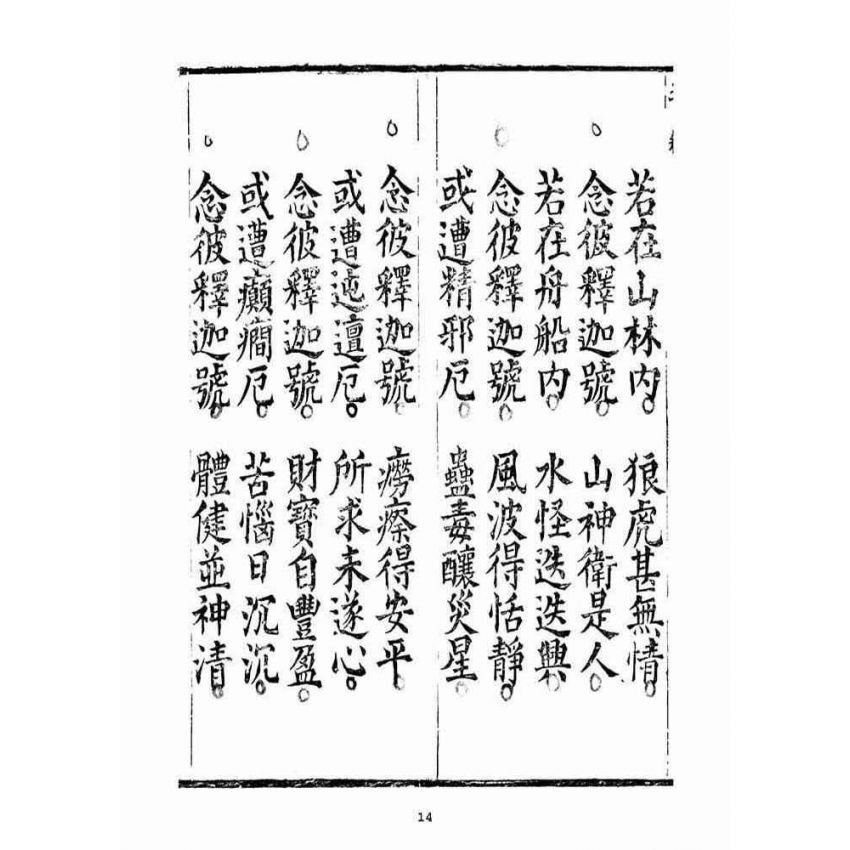 若在山林內。 狼虎甚無情。
念彼釋迦號。 山神衛是人。
若在舟船內。 水怪迭迭興。
念彼釋迦號。 風波得恬靜。
或遭精邪厄。 蠱毒釀災星。
念彼釋迦號。 癆瘵得安平。
或遭迍邅厄。 所求未遂心。
念彼釋迦號。 財寶自豐盈。
或遭癲癇厄。 苦惱日沉沉。
念彼釋迦號。 體健並神清。
14